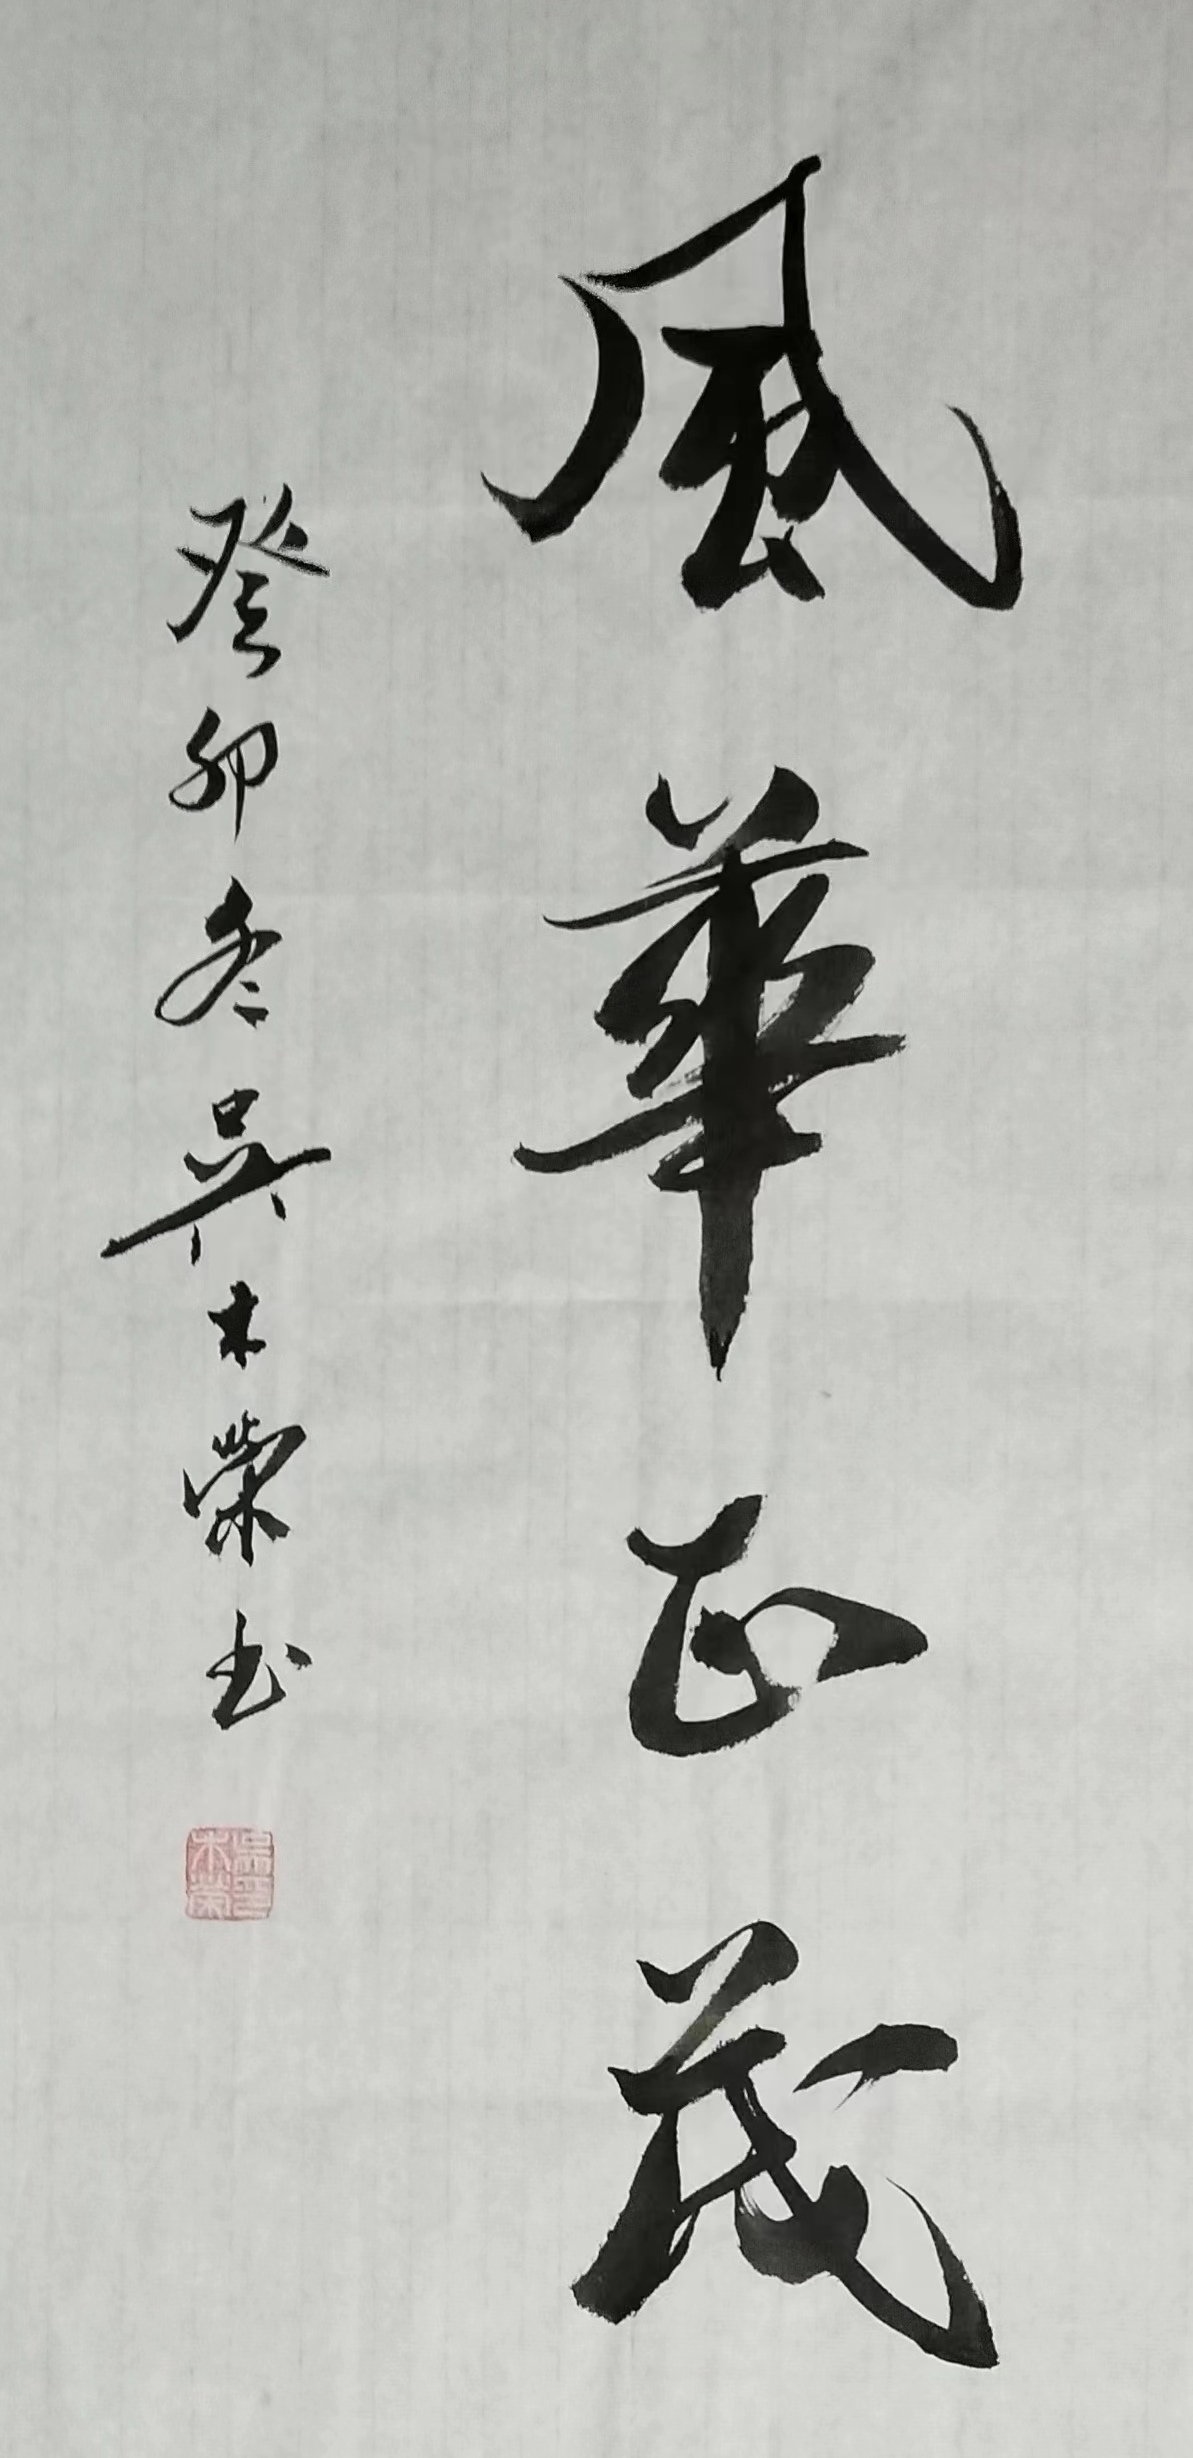 風華正茂
癸卯冬吳木榮书
吳木榮印